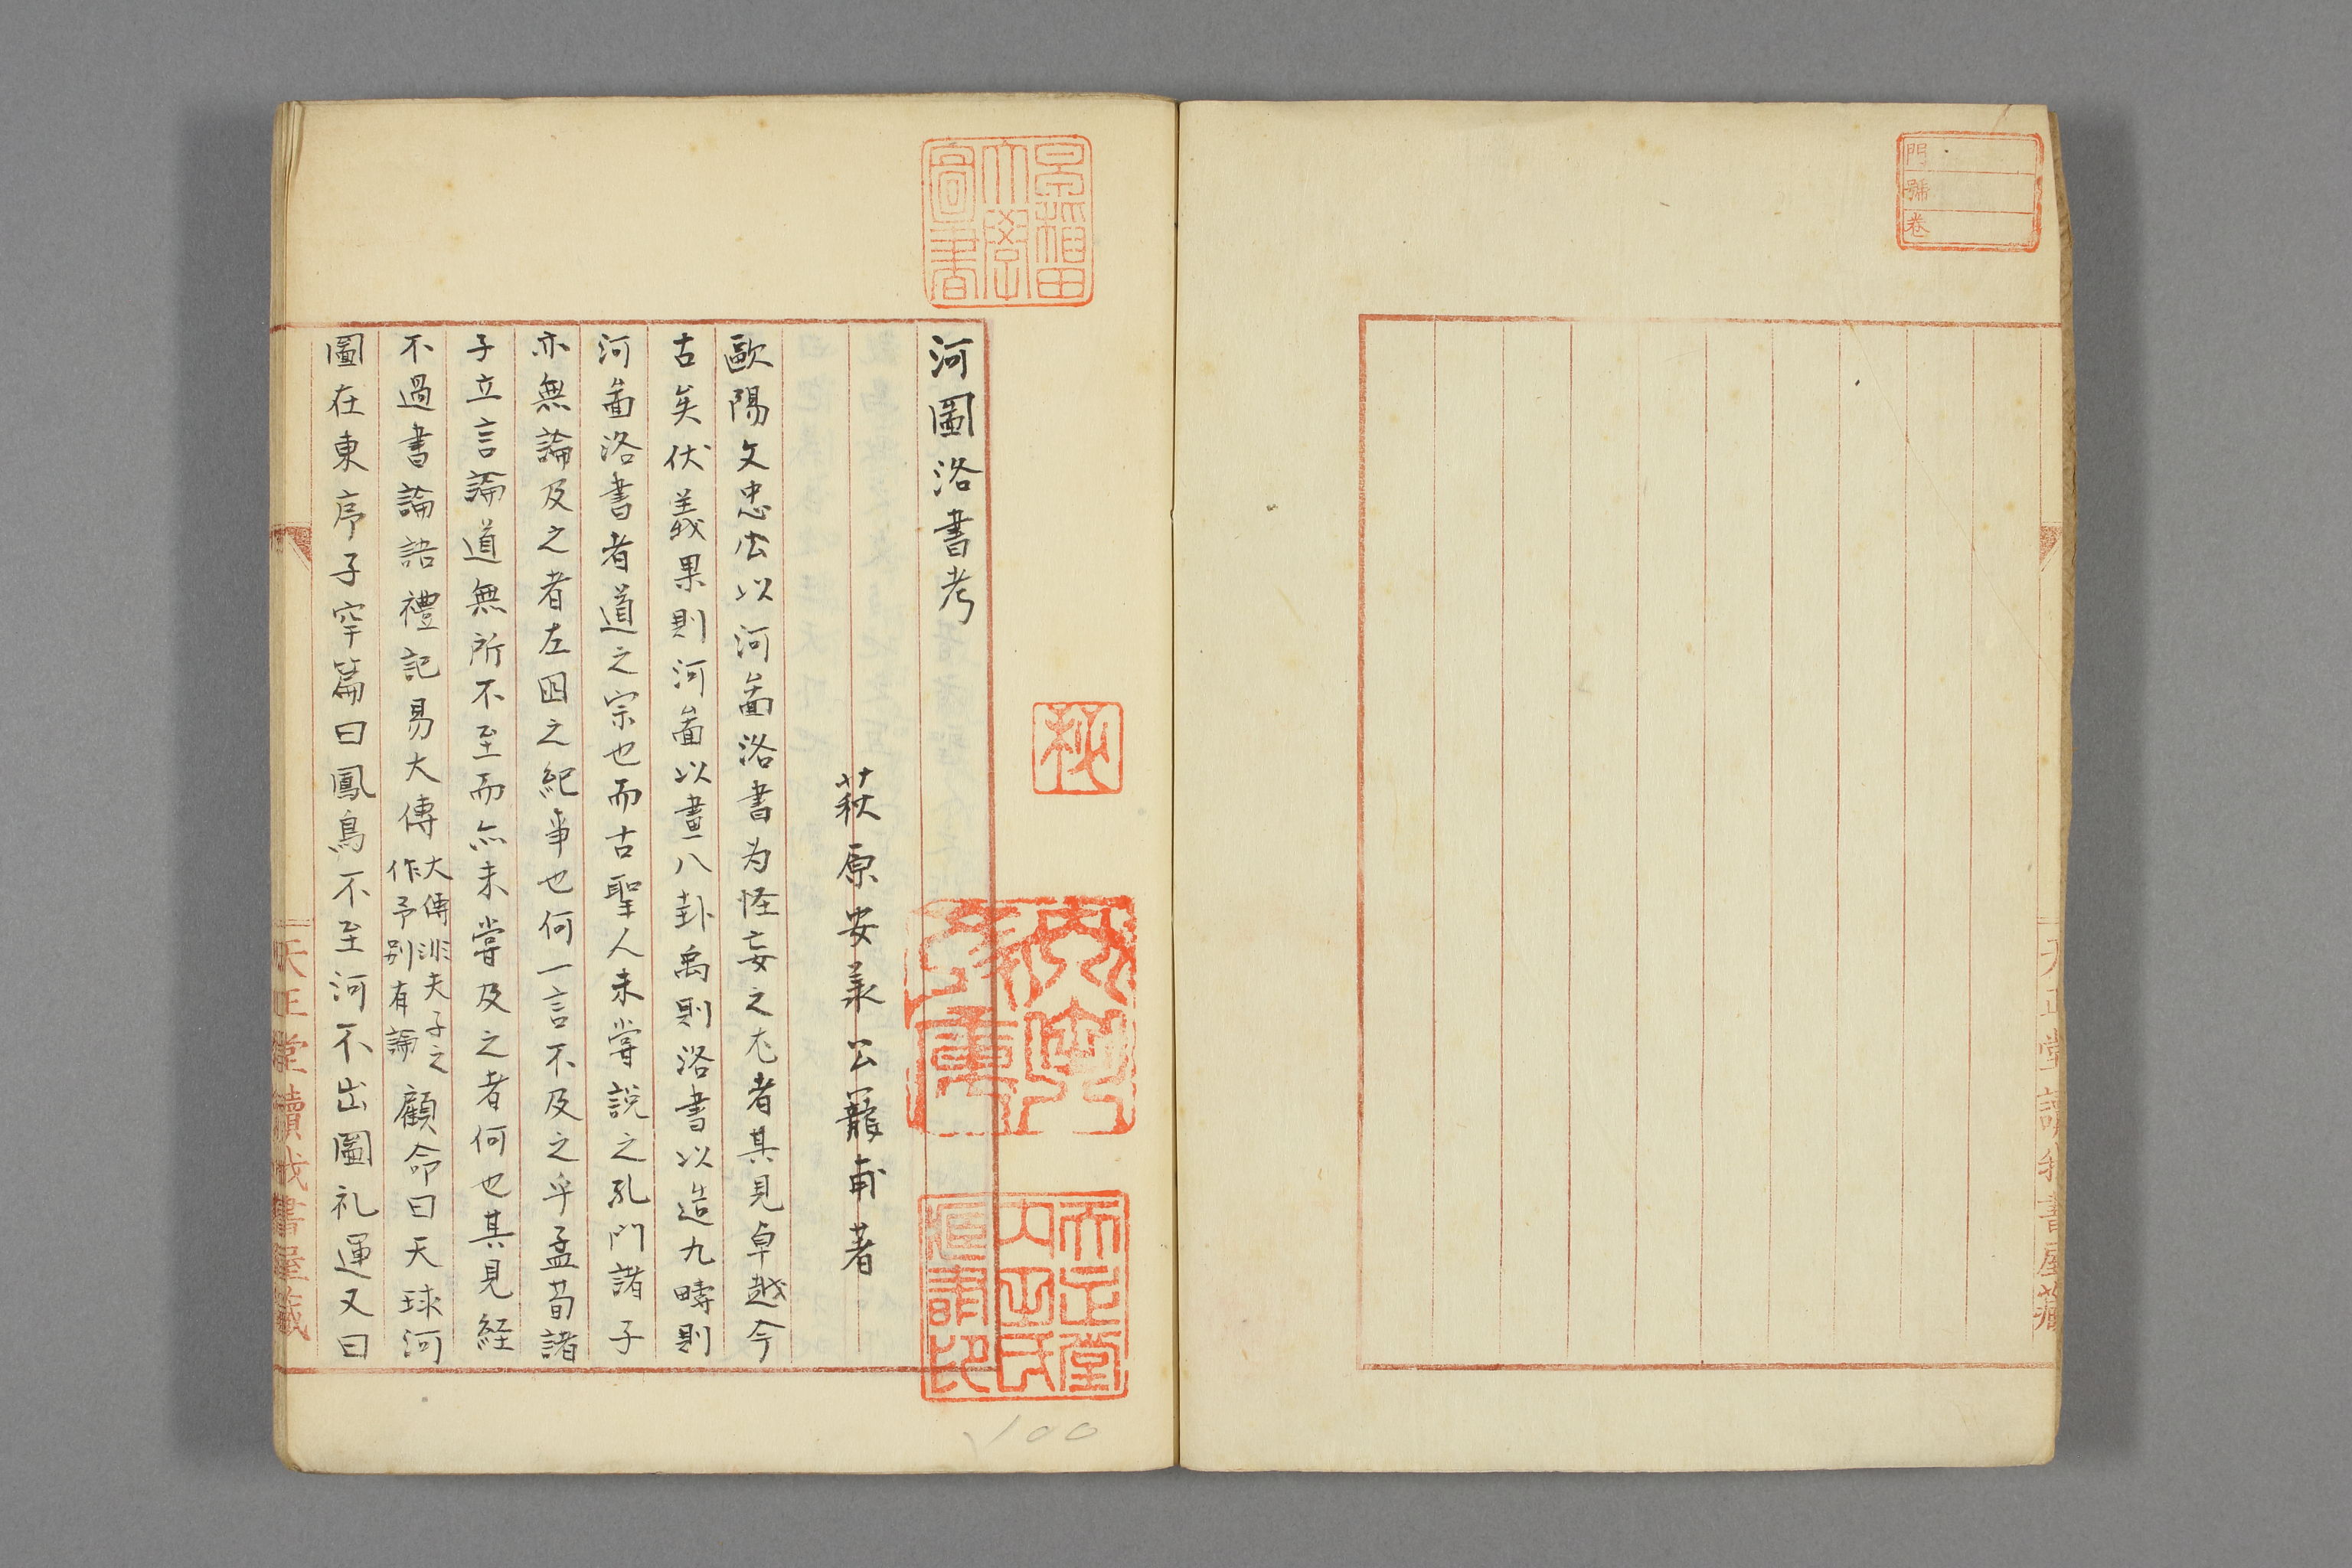 門
號
卷
天正堂讀我書屋藏
早稲田
大學
圖書
天正堂
大山氏
河圖洛書考
萩原安承公寵甫著
歐陽文忠公以河啚洛書为怪妄之尤者其見卓越今
古矣伏羲果則河啚以畫八卦禹則洛書以造九疇則
河啚洛書者道之宗也而古聖人未嘗說之孔門諸子
亦無論及之者左囯之紀事也何一言不及之乎孟荀諸
子立言論道無所不至而亦未嘗及之者何也其見経
不過書論語禮記易大傳
大傳非夫子之
作予别有論
顧命曰天球河
圖在東序子罕篇曰鳳鳥不至河不出圖礼運又曰
天正堂讀我書屋藏
100